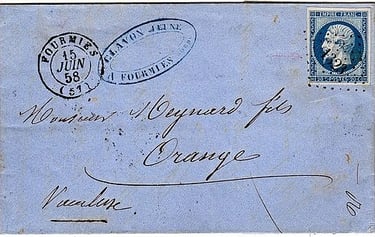 FOURMIES
15
JUIN
58
(57)
CLAVON JEUNE
A FOURMIES
EMPIRE FRANC
Monsieur Meynard fils
Orange
Vaucluse